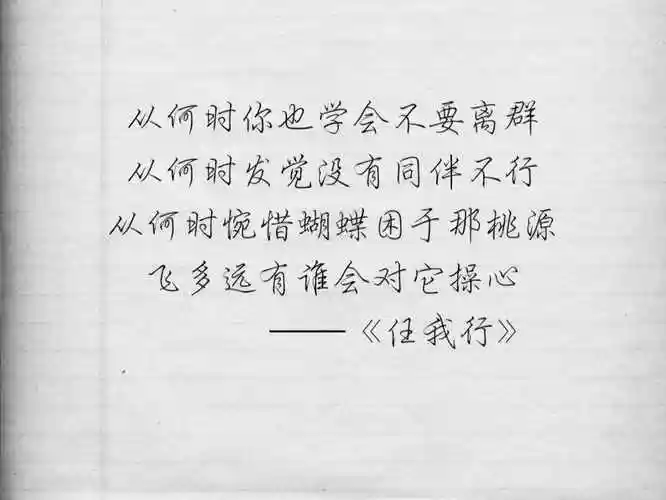 从何时你也学会不要离群
从何时发觉没有同伴不行
从何时惋惜蝴蝶困于那桃源
飞多远有谁会对它操心
——《任我行》